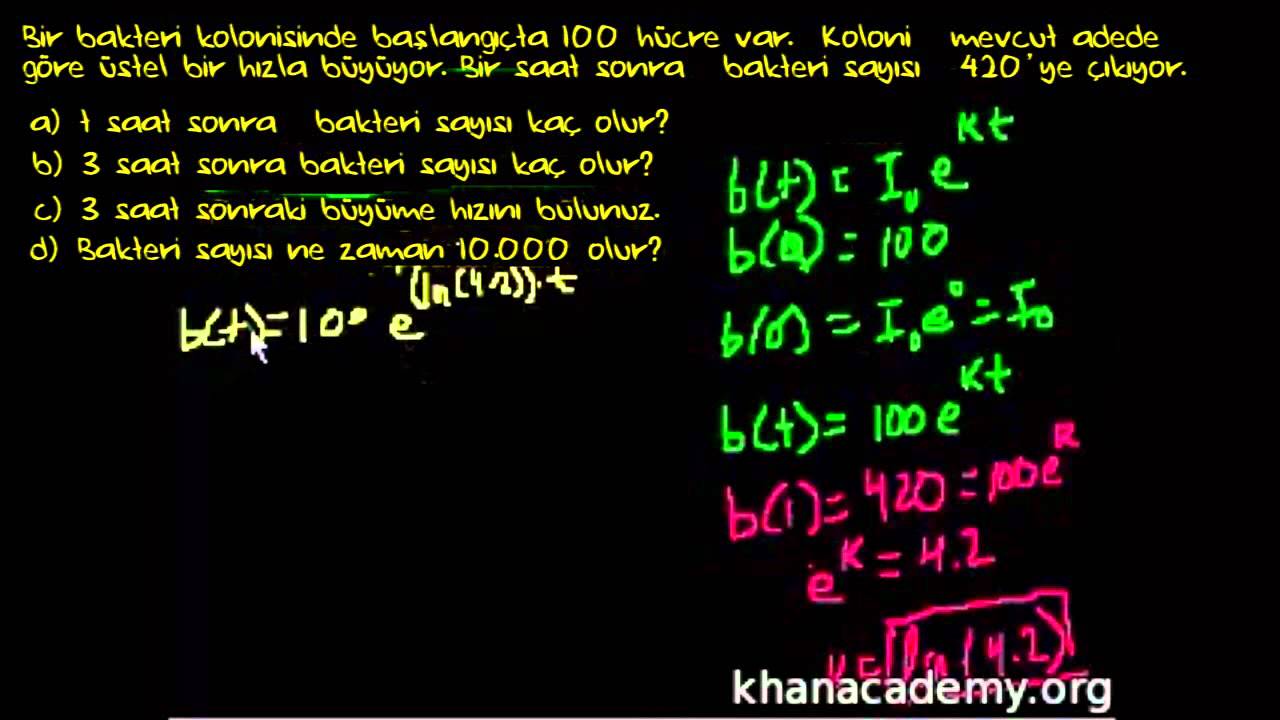 Bir bakteri kolonisinde başlangıçta 100 hücre var. Koloni mevcut adede
göre üstel bir hızla büyüyor. Bir saat sonra bakteri sayısı 420'ye çıkıyor.
a) t saat sonra bakteri sayısı kaç olur?
b) 3 saat sonra bakteri sayısı kaç olur?
c) 3 saat sonraki büyüme hızını bulunuz.
d) Bakteri sayısı ne zaman 10.000 olur?
b(t)=100 e^(ln(4.2))·t
b(t) = I₀e^kt
b(0) = 100
b(0) = I₀e⁰ = I₀
b(t) = 100e^kt
b(1) = 420 = 100e^k
e^k = 4.2
k = ln(4.2)
khanacademy.org